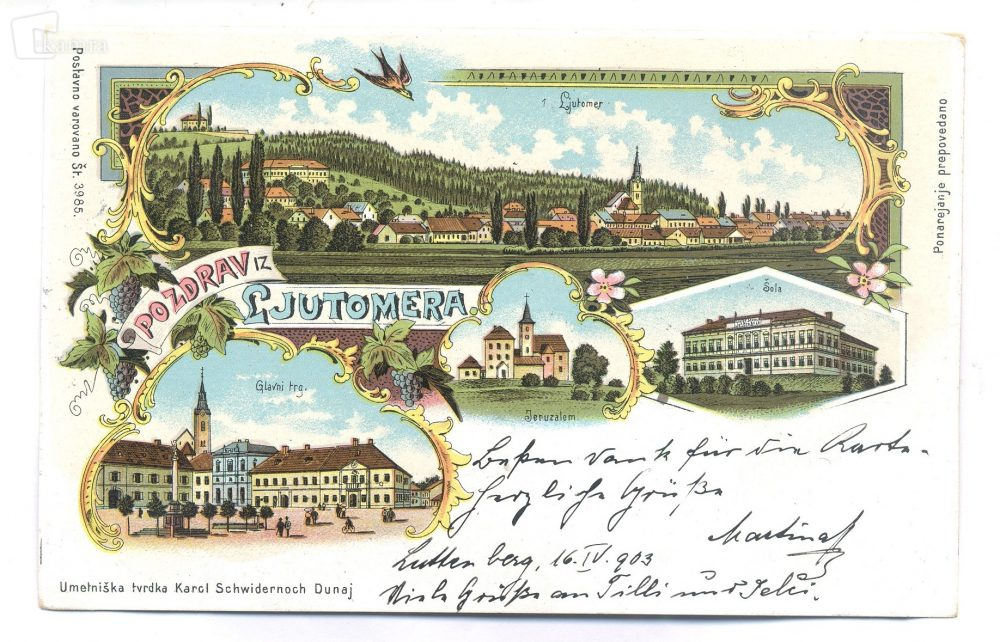 kamra
Postavno varovano Št. 3985.
Ljutomer
Ponarejanje prepovedano
POZDRAV IZ
LJUTOMERA.
Šola
Glavni trg.
Jeruzalem
Besten Dank für die Karte.
Herzliche Grüße
Luttenberg, 16.IV.903
Viele Grüße an Tilli und
Umetniška tvrdka Karol Schwidernoch Dunaj